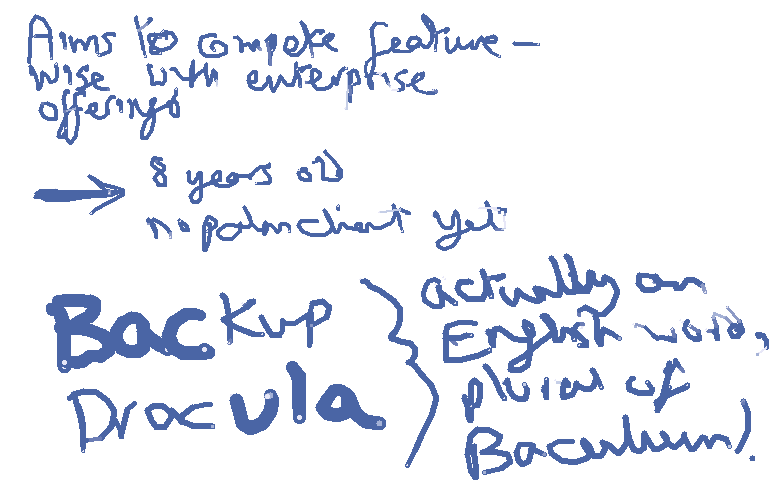 Aims to compete feature-
wise with enterprise
offerings
8 years old
no palm client yet
Backup
Dracula
actually an
English word,
plural of
Baculum).